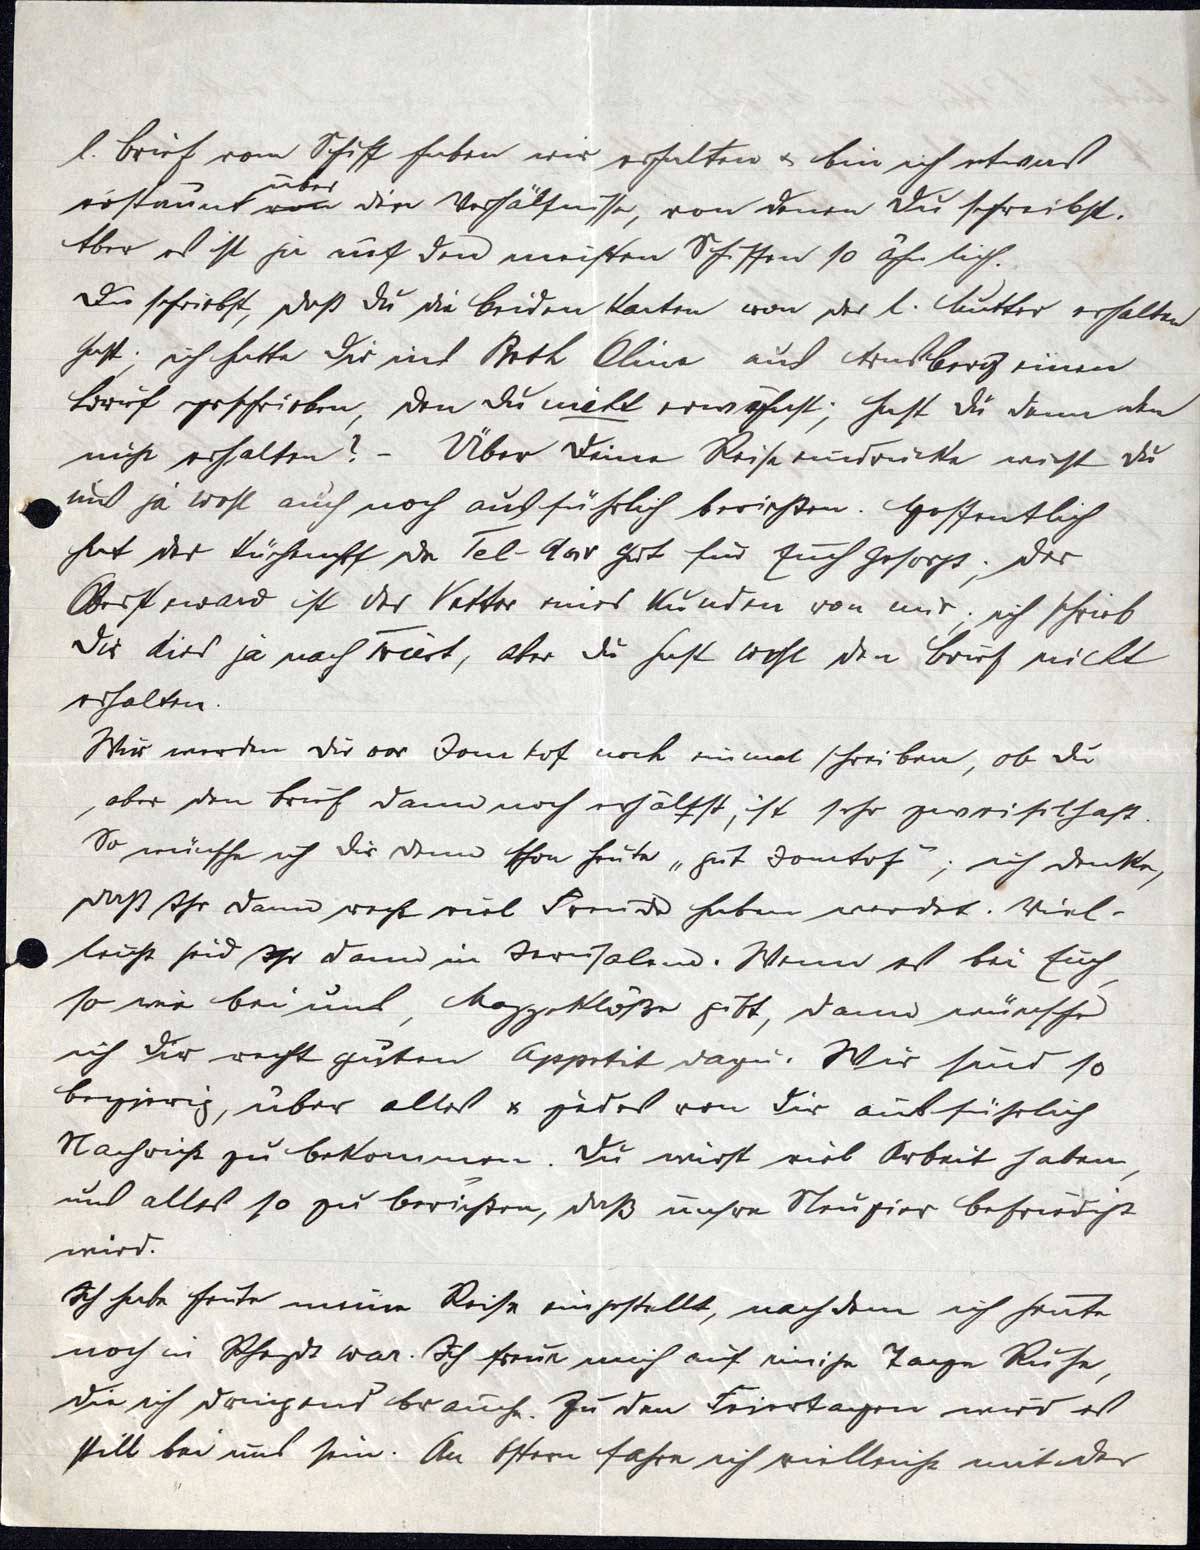 l. Brief vom Schiff haben wir erhalten & bin ich etwas
erstaunt über die Verhältnisse, von denen Du schreibst.
Aber es ist ja auf den meisten Schiffen so ähnlich.
Du schriebst, daß Du die beiden Karten von der l. Mutter erhalten
hast; ich hatte Dir ins Beth Olim aus Arnsberg einen
Brief geschrieben, den Du nicht erwähnst; hast Du denn den
nicht erhalten? – Über Deine Reiseeindrücke wirst Du
uns ja wohl auch noch ausführlich berichten. Hoffentlich
hat der Küchenchef der Tel-Aviv gut für Euch gesorgt; der
Obersteward ist der Vetter eines Kunden von mir; ich schrieb
Dir dies ja nach Triest, aber Du hast wohl den Brief nicht
erhalten.
Wir werden Dir vor Jomtof noch einmal schreiben, ob Du
aber den Brief dann noch erhältst, ist sehr zweifelhaft.
So wünsche ich Dir denn schon heute „gut Jomtof"; ich denke,
daß Ihr dann recht viel Freude haben werdet. Viel-
leicht seid Ihr dann in Jerusalem. Wenn es bei Euch,
so wie bei uns, Mazzeklöße gibt, dann wünsche
ich Dir recht guten Appetit dazu. Wir sind so
begierig, über alles & jedes von Dir ausführlich
Nachricht zu bekommen. Du wirst viel Arbeit haben,
uns alles so zu berichten, daß unsre Neugier befriedigt
wird.
Ich habe heute meine Reise eingestellt, nachdem ich heute
noch in Rheydt war. Ich freue mich auf einige Tage Ruhe,
die ich dringend brauche. Zu den Feiertagen wird es
still bei uns sein. An Ostern fahre ich vielleicht mit der